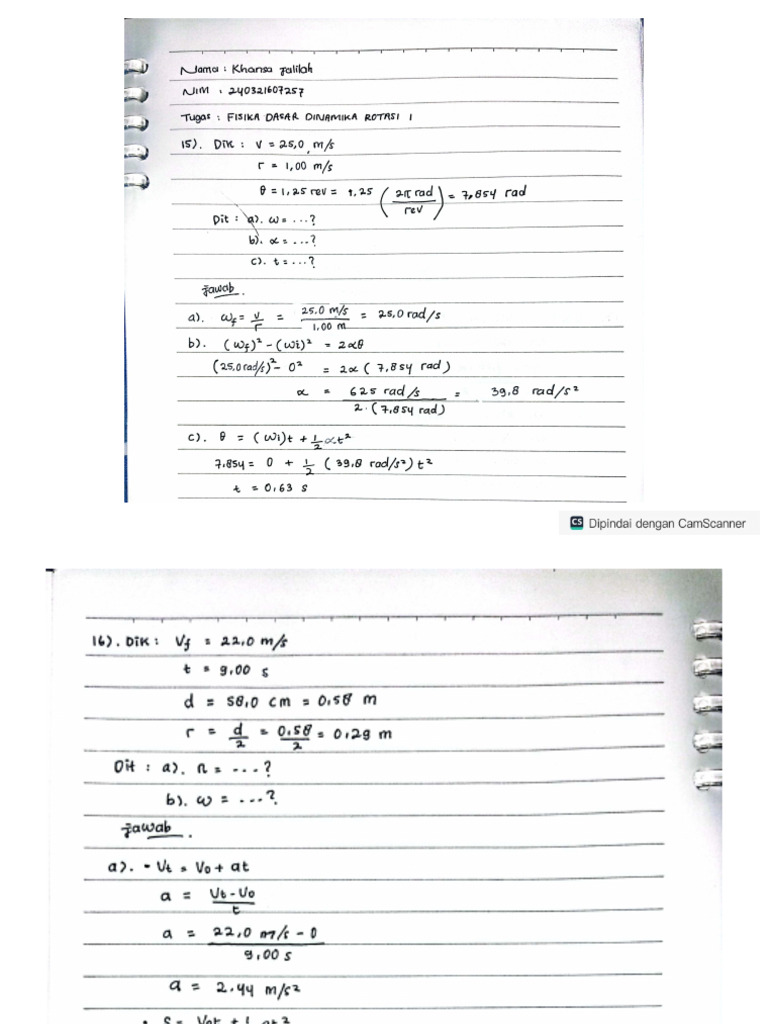 Nama : Khansa Jalilah
NIM : 240321607257
Tugas : FISIKA DASAR DINAMIKA ROTASI 1
15). Dik : v = 25,0 m/s
r = 1,00 m/s
θ = 1,25 rev = 1,25 (2π rad / rev) = 7,854 rad
Dit : a). ω = ...?
b). α = ...?
c). t = ...?
Jawab.
a). ωf = v/r = 25,0 m/s / 1,00 m = 25,0 rad/s
b). (ωf)² - (ωi)² = 2αθ
(25,0 rad/s)² - 0² = 2α (7,854 rad)
α = 625 rad/s / 2.(7,854 rad) = 39,8 rad/s²
c). θ = (ωi)t + 1/2 αt²
7,854 = 0 + 1/2 (39,8 rad/s²) t²
t = 0,63 s
CS Dipindai dengan CamScanner
16). Dik : Vf = 22,0 m/s
t = 9,00 s
d = 58,0 cm = 0,58 m
r = d/2 = 0,58/2 = 0,29 m
Dit : a). n = ...?
b). ω = ...?
Jawab.
a). - Vt = Vo + at
a = Vt - Vo / t
a = 22,0 m/s - 0 / 9,00 s
a = 2.44 m/s²
• S = Vot + 1 at²